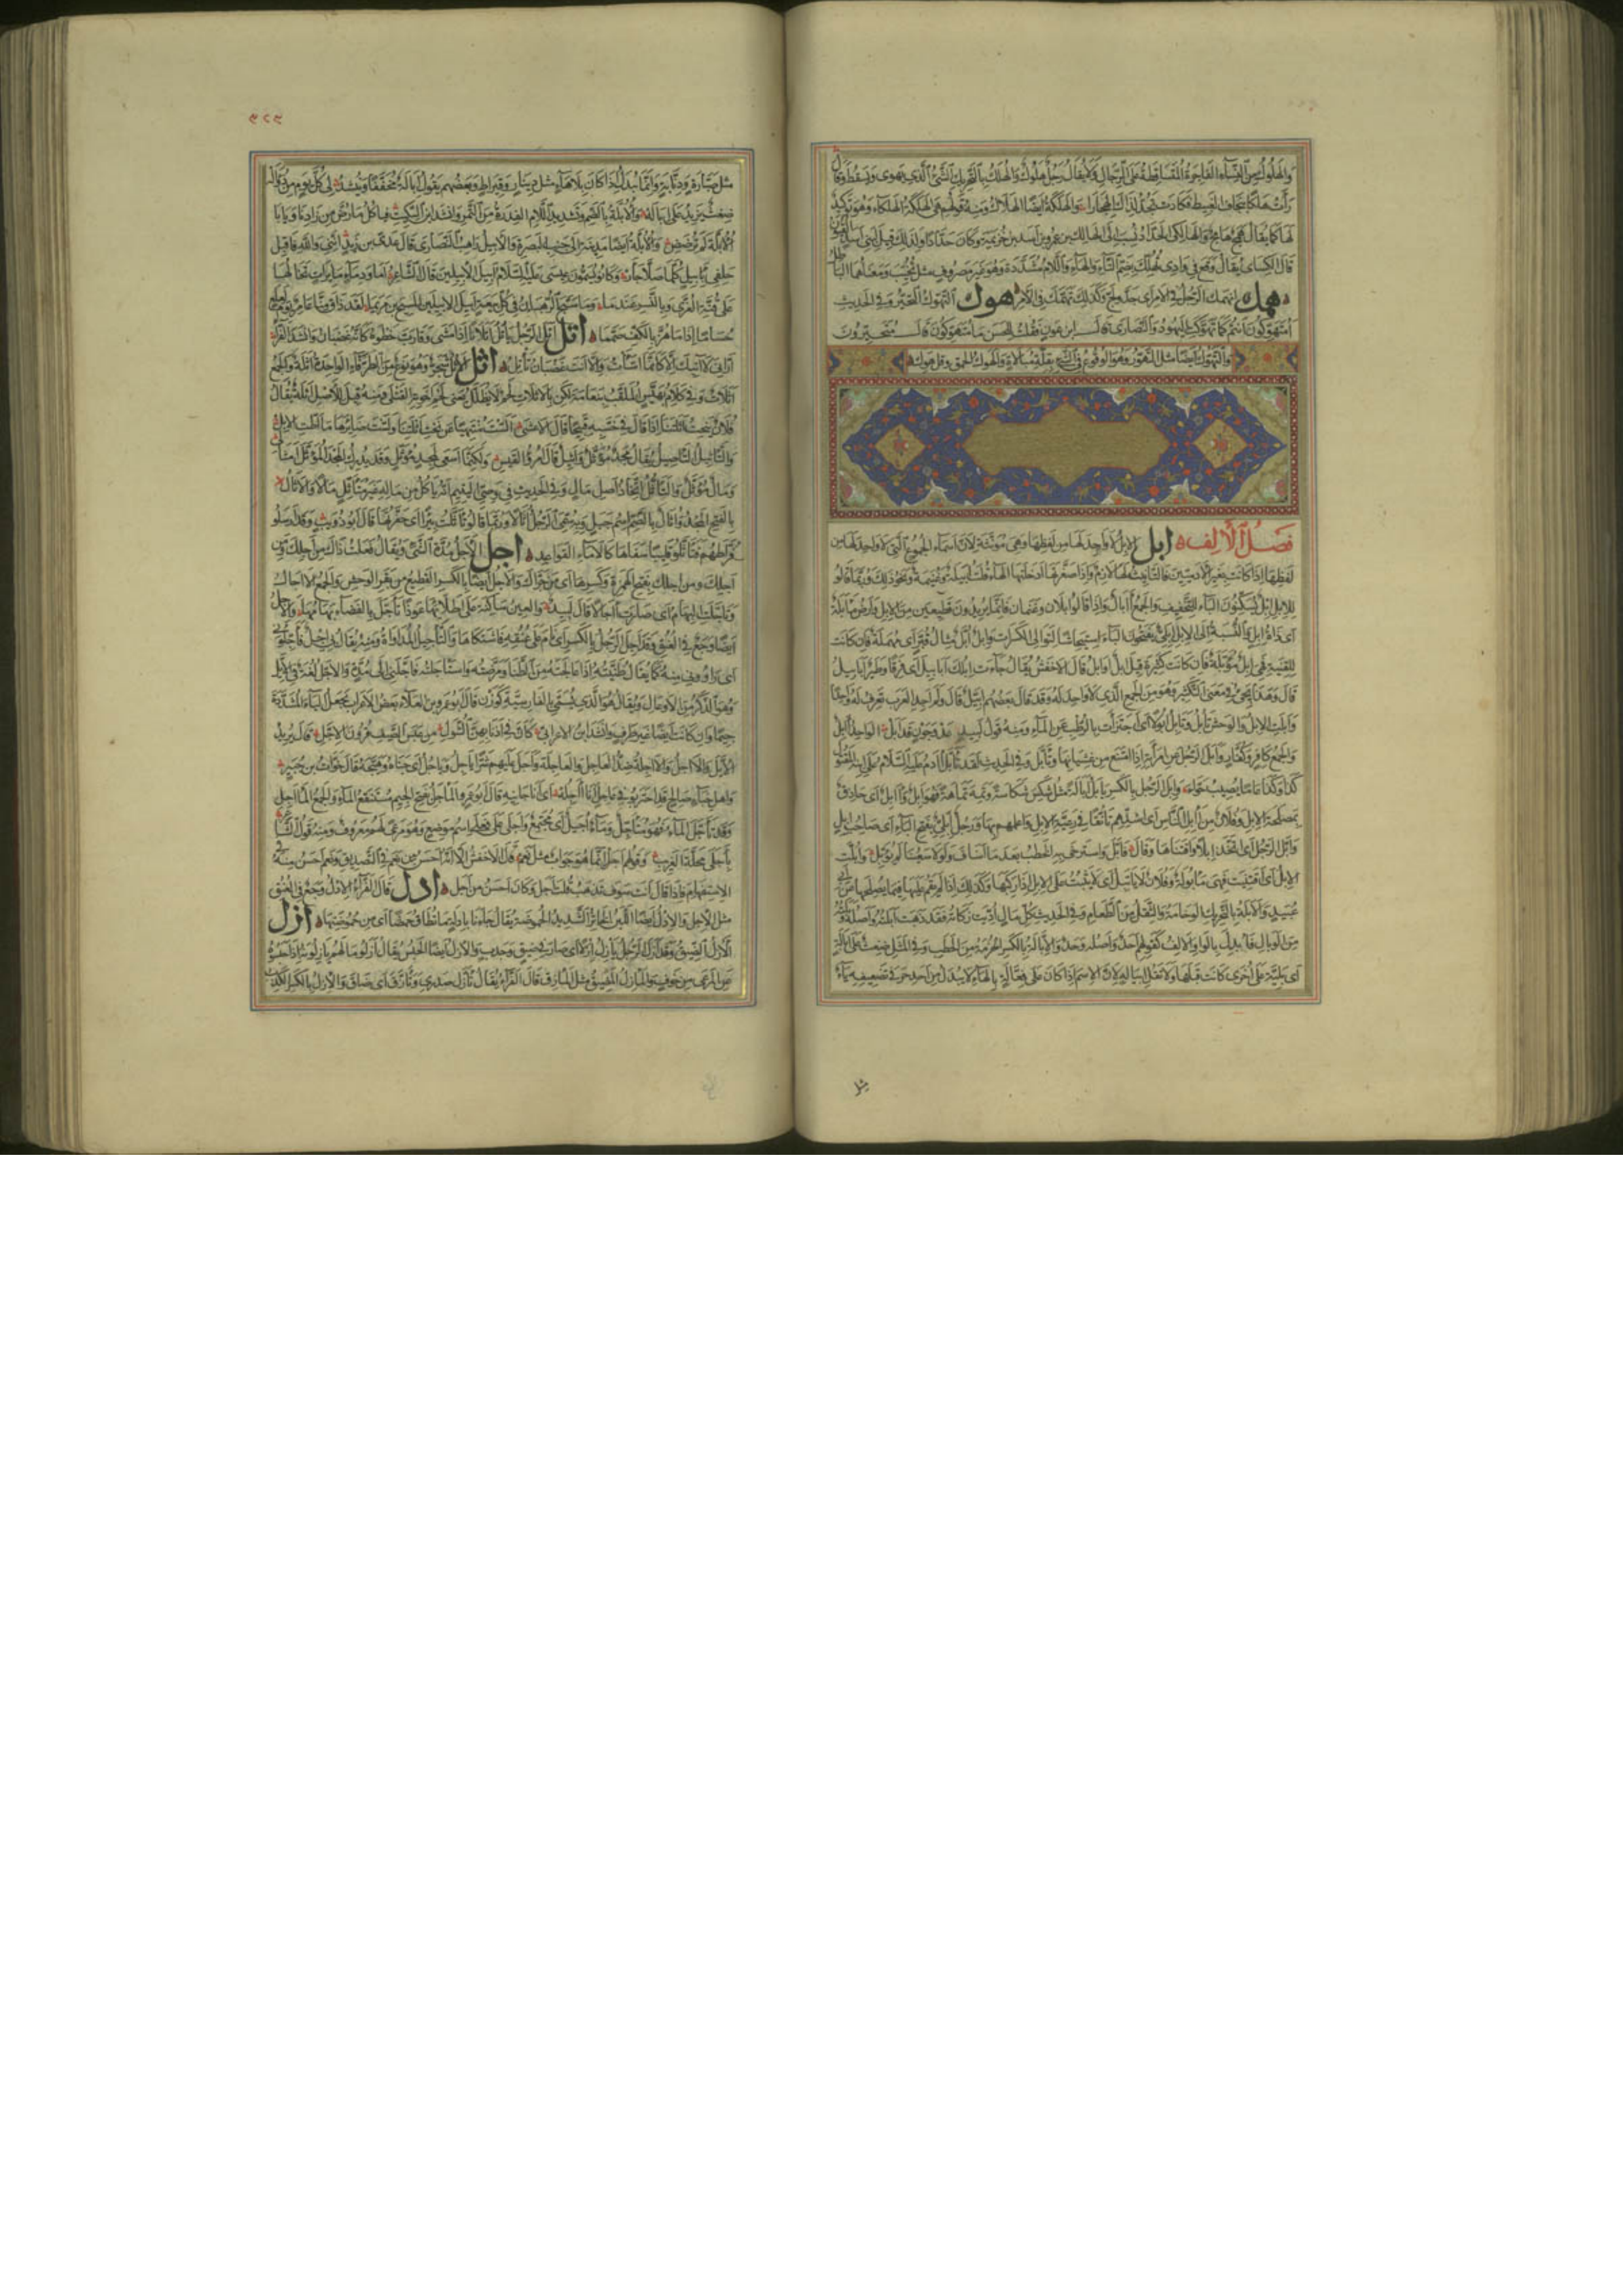 والهلوك من النساء الفاجرة المتساقطة على الرجال ولا يقال رجل هلوك والهلك بالتحريك الشيء الذي يهوي ويسقط وقال
رأت هلكا بنجاف الغبيط فكادت تجد لذاك الهجارا والهلكة أيضا الهلاك ومنه قولهم هي الهلكة الهلكاء وهو توكيد
لها كما يقال همج هامج والهالكي الحداد نسب إلى الهالك بن عمرو بن أسد بن خزيمة وكان حدادا ولذلك قيل لبني أسد القيون
قال الكسائي يقال وقع في وادي تهلك بضم التاء والهاء واللام مشددة وهو غير مصروف مثل تخيب ومعناهما الباطل
همك انهمك الرجل في الأمر أي جد ولج وكذلك تهمك في الأمر هوك التهوك التحير وفي الحديث
أمتهوكون أنتم كما تهوكت اليهود والنصارى قال ابن عون فقلت للحسن ما متهوكون قال متحيرون
والتهوك أيضا مثل التهور وهو الوقوع في الشيء بقلة مبالاة والهوك الحمق
فصل الألف ابل الإبل لا واحد لها من لفظها وهي مؤنثة لأن أسماء الجموع التي لا واحد لها من
لفظها إذا كانت لغير الآدميين فالتأنيث لها لازم وإذا صغرتها أدخلتها الهاء قلت أبيلة وغنيمة ونحو ذلك وربما قالوا
للإبل إبل يسكنون الباء للتخفيف والجمع آبال وإذا قالوا إبلان وغنمان فإنما يريدون قطيعين من الإبل وأرض مأبلة
أي ذات إبل والنسبة إلى الإبل إبلي يفتحون الباء استيحاشا لتوالي الكسرات وإبل أبل مثال قبر أي مهملة فإن كانت
للقنية فهي إبل مؤبلة فإن كانت كثيرة قيل إبل أوابل قال الأخفش يقال جاءت إبلك أبابيل أي فرقا وطير أبابيل
قال وهذا يجيء في معنى التكثير وهو من الجمع الذي لا واحد له وقد قال بعضهم إبيل قال ولم أجد العرب تعرف له واحدا
وأبلت الإبل والوحش تأبل وتأبل أبولا أي اجتزأت بالرطب عن الماء ومنه قول لبيد قد أبل الواحد آبل
والجمع كافر وكفار وأبل الرجل عن امرأته إذا امتنع من غشيانها وتأبل وفي الحديث لقد تأبل آدم عليه السلام على ابنه المقتول
كذا وكذا عاما لا يصيب حواء وأبل الرجل بالكسر يأبل أبالة مثل شكس شكاسة وتمه تماهة فهو أبل وآبل أي حاذق
بمصلحة الإبل وفلان من آبل الناس أي أشدهم تأنقا في رعية الإبل وأعلمهم بها ورجل إبلي بفتح الباء أي صاحب إبل
وأبل الرجل أي اتخذ إبلا واقتناها وقال فأبل واسترخى به الخطب بعد ما أساف ولولا سعينا لم يؤبل وأبلت
الإبل أي اقتنيت فهي مأبولة وفلان لا يأتبل أي لا يثبت على الإبل إذا ركبها وكذلك إذا لم يقم عليها فيما يصلحها عن أبي
عبيد والأبلة بالتحريك الوخامة والثقل من الطعام وفي الحديث كل مال أديت زكاته فقد ذهبت أبلته وأصله وبلته
من الوبال فأبدل بالواو الألف كقولهم أحد وأصله وحد والإبالة بالكسر الحزمة من الحطب وفي المثل ضغث على إبالة
أي بلية على أخرى كانت قبلها ولا تقل إيبالة لأن الاسم إذا كان على فعالة بالهاء لا يبدل من أحد حرفي تضعيفه ياء
مثل
٥٢٥
مثل صنارة ودنابة وإنما يبدل إذا كان بلا هاء مثل دينار وقيراط وبعضهم يقول إبالة مخففا وينشد لي كل يوم من ذؤاله
ضغث يزيد على إباله والأبلة بالضم وتشديد اللام الفدرة من التمر وأنشد ابن السكيت فيأكل ما رض من زادنا ويأبى
الأبلة لم ترضض والأبلة أيضا مدينة إلى جنب البصرة والأبيل راهب النصارى قال عدي بن زيد إنني والله فاقبل
حلفي بأبيل كلما صلى جأر وكانوا يسمون عيسى عليه السلام أبيل الأبيلين قال الشاعر أما ودماء مائرات تخالها
على قنة العزى وبالنسر عندما وما سبح الرهبان في كل بيعة أبيل الأبيلين المسيح بن مريما لقد ذاق منا عامر يوم لعلع
حساما إذا ما هز بالكف صمما اتل أتل الرجل يأتل أتلانا إذا مشى وقارب خطوه كأنه غضبان وأنشد الفراء
أراني لا آتيك إلا كأنما أسأت وإلا أنت غضبان تأتل اثل الأثل شجر وهو نوع من الطرفاء الواحدة أثلة والجمع
أثلات وفي كلام بيهس الملقب بنعامة لكن بالأثلات لحم لا يظلل يعني لحم إخوته القتلى ومنه قيل للأصل أثلة يقال
فلان ينحت أثلتنا إذا قال في حسبه قبيحا قال الأعشى ألست منتهيا عن نحت أثلتنا ولست ضائرها ما أطت الإبل
والتأثيل التأصيل يقال مجد مؤثل وأثيل قال امرؤ القيس ولكنما أسعى لمجد مؤثل وقد يدرك المجد المؤثل أمثالي
ومال مؤثل والتأثل اتخاذ أصل مال وفي الحديث في وصي اليتيم أنه يأكل من ماله غير متأثل مالا والأثال
بالفتح المجد وأثال بالضم اسم جبل وبه سمي الرجل أثالا وربما قالوا تأثلت بئرا أي حفرتها قال أبو ذؤيب وقد أرسلوا
فراطهم فتأثلوا قليبا سفاها كالإماء القواعد اجل الأجل مدة الشيء ويقال فعلت ذلك من أجلك ومن
أجلاك ومن إجلك بفتح الهمزة وكسرها أي من جراك والإجل أيضا بالكسر القطيع من بقر الوحش والجمع الآجال
وتأجلت البهائم أي صارت آجالا قال لبيد والعين ساكنة على أطلائها عوذا تأجل بالفضاء بهامها والإجل
أيضا وجع في العنق وقد أجل الرجل بالكسر أي نام على عنقه فاشتكاها والتأجيل المداواة ومنه يقال بي إجل فأجلوني
أي داووني منه كما يقال طنيته إذا عالجته من الطنا ومرضته واستأجلته فأجلني إلى مدة والإجل لغة في الإيل
وهو الذكر من الأوعال ويقال هو الذي يسمى بالفارسية كوزن قال أبو عمرو بن العلاء بعض الأعراب يجعل الياء المشددة
جيما وإن كانت أيضا غير طرف وأنشد ابن الأعرابي كأن في أذنابهن الشول من عبس الصيف قرون الإجل قال يريد
الإيل والآجل والآجلة ضد العاجل والعاجلة وأجل عليهم شرا يأجل ويأجل أي جناه وهيجه قال خوات بن جبير
وأهل خباء صالح قد احتربوا في عاجل أنا آجله أي أنا جانيه قال أبو عمرو المأجل بفتح الجيم مستنقع الماء والجمع المآجل
وقد تأجل الماء فهو متأجل وماء أجيل أي مجتمع وأجلى على فعلى اسم موضع وهو مرعى لهم معروف ومنه قول الشاعر
بأجلى محلة الغريب وقولهم أجل إنما هو جواب مثل نعم قال الأخفش إلا أنه أحسن من نعم في التصديق ونعم أحسن منه في
الاستفهام فإذا قال أنت سوف تذهب قلت أجل وكان أحسن من نعم ادل قال الفراء الإدل وجع في العنق
مثل الإجل والإدل أيضا اللبن الخاثر الشديد الحموضة يقال جاءنا بإدلة ما تطاق حمضا أي من حموضتها ازل
الأزل الضيق وقد أزل الرجل يأزل أزلا أي صار في ضيق وجدب والأزل أيضا الحبس يقال أزلوا مالهم يأزلونه إذا حبسوه
عن المرعى من خوف والمأزل المضيق مثل المأزق قال الفراء يقال تأزل صدري وتأزق أي ضاق والإزل بالكسر الكذب